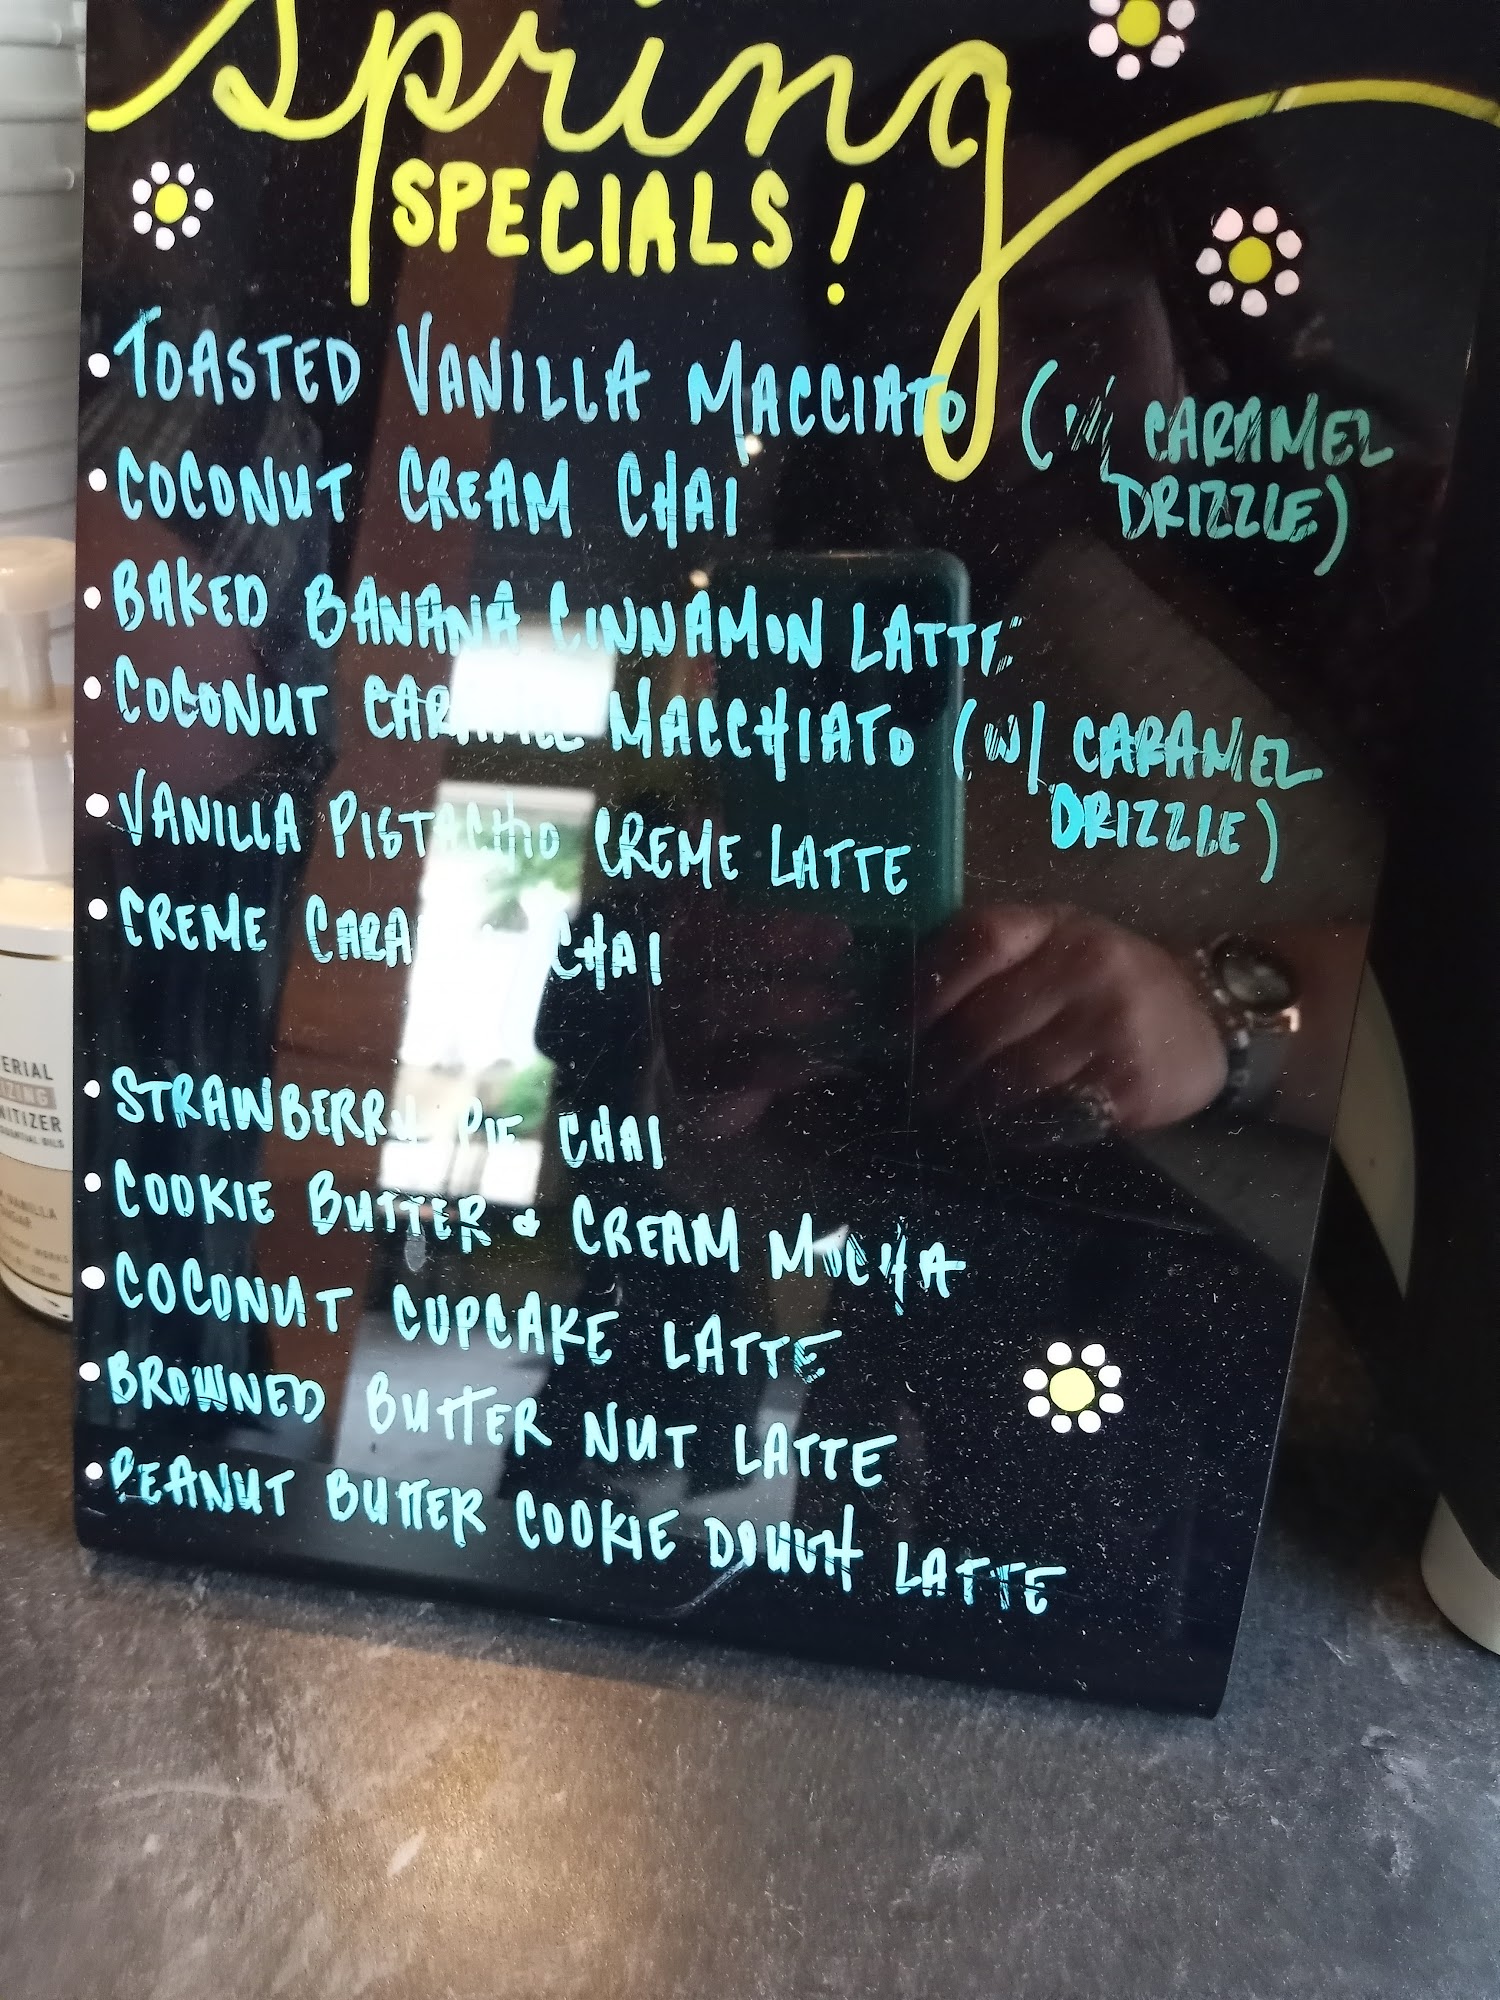 Spring
SPECIALS!
• TOASTED VANILLA MACCIATO (W/ CARAMEL
DRIZZLE)
• COCONUT CREAM CHAI
• BAKED BANANA CINNAMON LATTE
• COCONUT CARAMEL MACCHIATO (W/ CARAMEL
DRIZZLE)
• VANILLA PISTACHIO CREME LATTE
• CREME CHAI
• STRAWBERRY PIE CHAI
• COOKIE BUTTER & CREAM MOCHA
• COCONUT CUPCAKE LATTE
• BROWNED BUTTER NUT LATTE
• PEANUT BUTTER COOKIE DOUGH LATTE
ERIAL
IZING
NITIZER
VANILLA